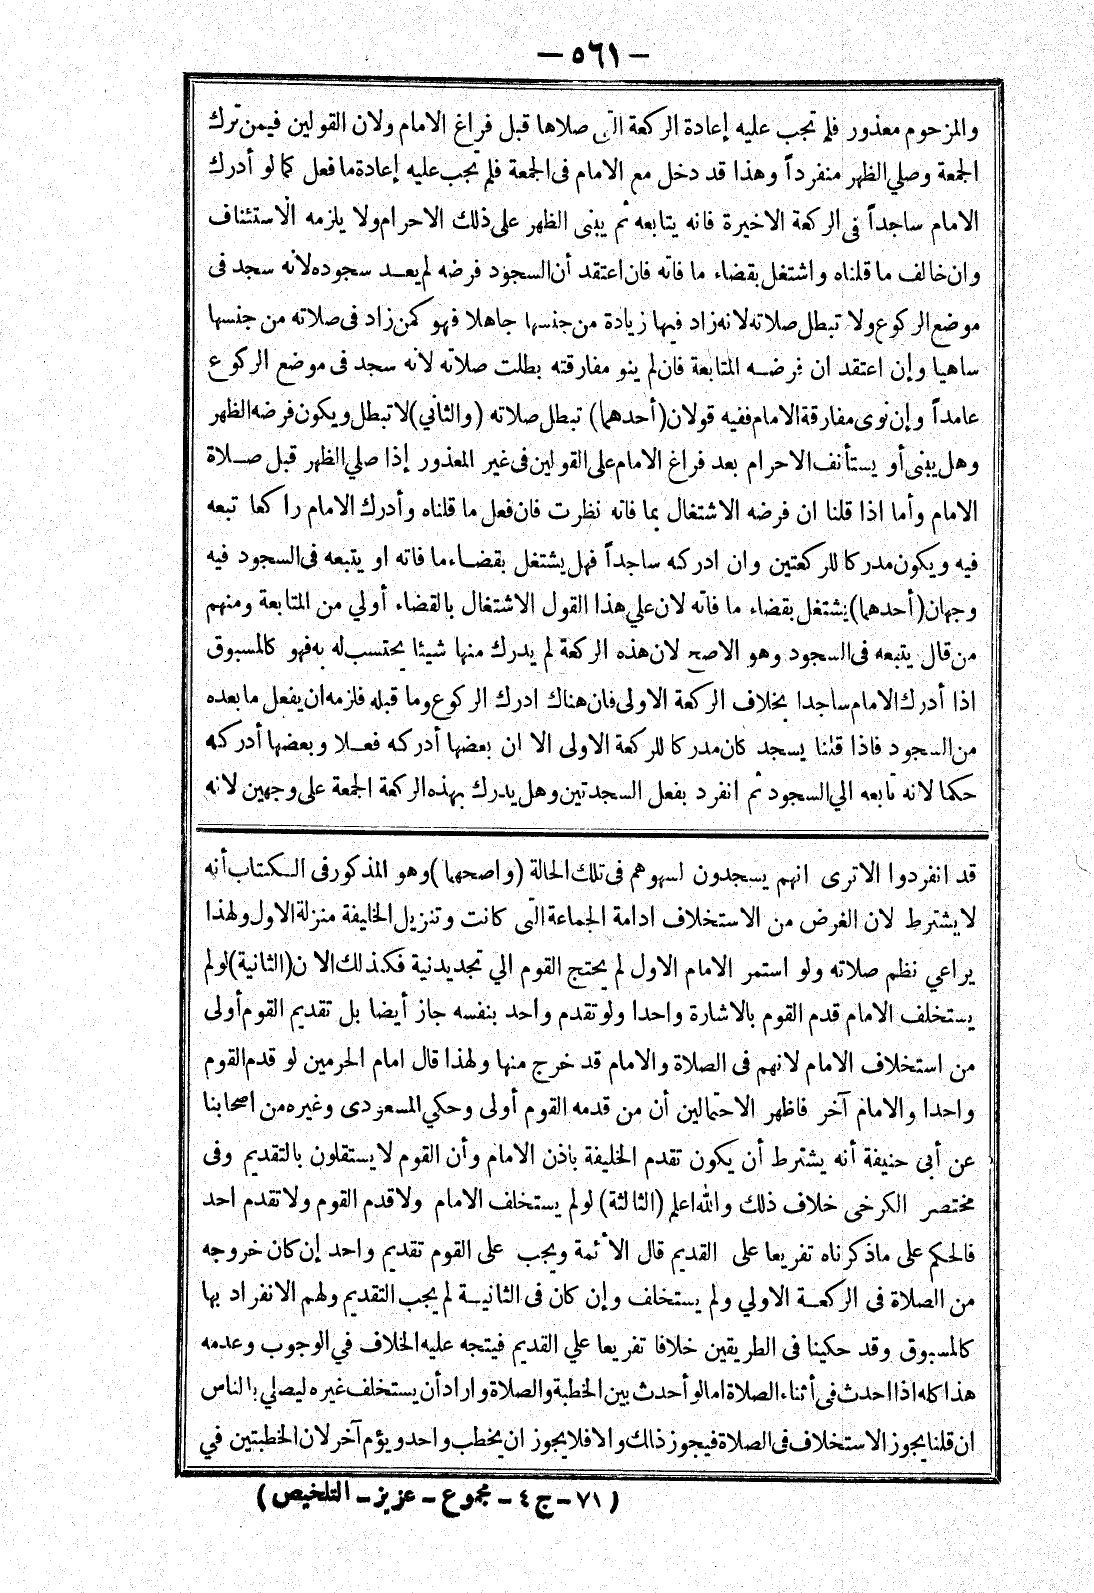 — ٥٦١ —
والمزحوم معذور فلم تجب عليه إعادة الركعة التى صلاها قبل فراغ الامام ولان القولين فيمن ترك
الجمعة وصلي الظهر منفرداً وهذا قد دخل مع الامام فى الجمعة فلم تجب عليه إعادة ما فعل كما لو أدرك
الامام ساجداً فى الركعة الاخيرة فانه يتابعه ثم يبنى الظهر على ذلك الاحرام ولا يلزمه الاستئناف
وان خالف ما قلناه واشتغل بقضاء ما فاته فان اعتقد أن السجود فرضه لم يعد سجوده لانه سجد فى
موضع الركوع ولا تبطل صلاته لانه زاد فيها زيادة من جنسها جاهلا فهو كمن زاد فى صلاته من جنسها
ساهيا وإن اعتقد ان فرضه المتابعة فان لم ينو مفارقته بطلت صلاته لانه سجد فى موضع الركوع
عامداً وإن نوى مفارقة الامام ففيه قولان (أحدهما) تبطل صلاته (والثاني) لا تبطل ويكون فرضه الظهر
وهل يبنى أو يستأنف الاحرام بعد فراغ الامام على القولين فى غير المعذور إذا صلي الظهر قبل صلاة
الامام وأما اذا قلنا ان فرضه الاشتغال بما فاته نظرت فان فعل ما قلناه وأدرك الامام راكعا تبعه
فيه ويكون مدركا للركعتين وان ادركه ساجداً فهل يشتغل بقضاء ما فاته او يتبعه فى السجود فيه
وجهان (أحدهما) يشتغل بقضاء ما فاته لان علي هذا القول الاشتغال بالقضاء أولي من المتابعة ومنهم
من قال يتبعه فى السجود وهو الاصح لان هذه الركعة لم يدرك منها شيئا يحتسب له به فهو كالمسبوق
اذا أدرك الامام ساجدا بخلاف الركعة الاولى فان هناك ادرك الركوع وما قبله فلزمه ان يفعل ما بعده
من السجود فاذا قلنا يسجد كان مدركا للركعة الاولى الا ان بعضها أدركه فعلا وبعضها أدركه
حكما لانه تابعه الي السجود ثم انفرد بفعل السجدتين وهل يدرك بهذه الركعة الجمعة على وجهين لانه
قد انفردوا الاترى انهم يسجدون لسهوهم فى تلك الحالة (واصحهما) وهو المذكور فى الكتاب أنه
لا يشترط لان الغرض من الاستخلاف ادامة الجماعة التى كانت وتنزيل الخليفة منزلة الاول ولهذا
يراعي نظم صلاته ولو استمر الامام الاول لم يحتج القوم الي تجديدنية فكذلك الان (الثانية) لو لم
يستخلف الامام قدم القوم بالاشارة واحدا ولو تقدم واحد بنفسه جاز أيضا بل تقديم القوم أولى
من استخلاف الامام لانهم فى الصلاة والامام قد خرج منها ولهذا قال امام الحرمين لو قدم القوم
واحدا والامام آخر فاظهر الاحتمالين أن من قدمه القوم أولى وحكي المسعودى وغيره من اصحابنا
عن أبى حنيفة أنه يشترط أن يكون تقدم الخليفة باذن الامام وأن القوم لا يستقلون بالتقديم وفى
مختصر الكرخى خلاف ذلك والله اعلم (الثالثة) لو لم يستخلف الامام ولا قدم القوم ولا تقدم احد
فالحكم على ما ذكرناه تفريعا على القديم قال الأئمة ويجب على القوم تقديم واحد إن كان خروجه
من الصلاة فى الركعة الاولي ولم يستخلف وإن كان فى الثانية لم يجب التقديم ولهم الانفراد بها
كالمسبوق وقد حكينا فى الطريقين خلافا تفريعا علي القديم فيتجه عليه الخلاف في الوجوب وعدمه
هذا كله اذا احدث فى أثناء الصلاة اما لو أحدث بين الخطبة والصلاة واراد أن يستخلف غيره ليصلي بالناس
ان قلنا يجوز الاستخلاف فى الصلاة فيجوز ذاك والا فلا يجوز ان يخطب واحد ويؤم آخر لان الخطبتين في
(٧١ – ج ٤ – مجموع – عزيز – التلخيص)